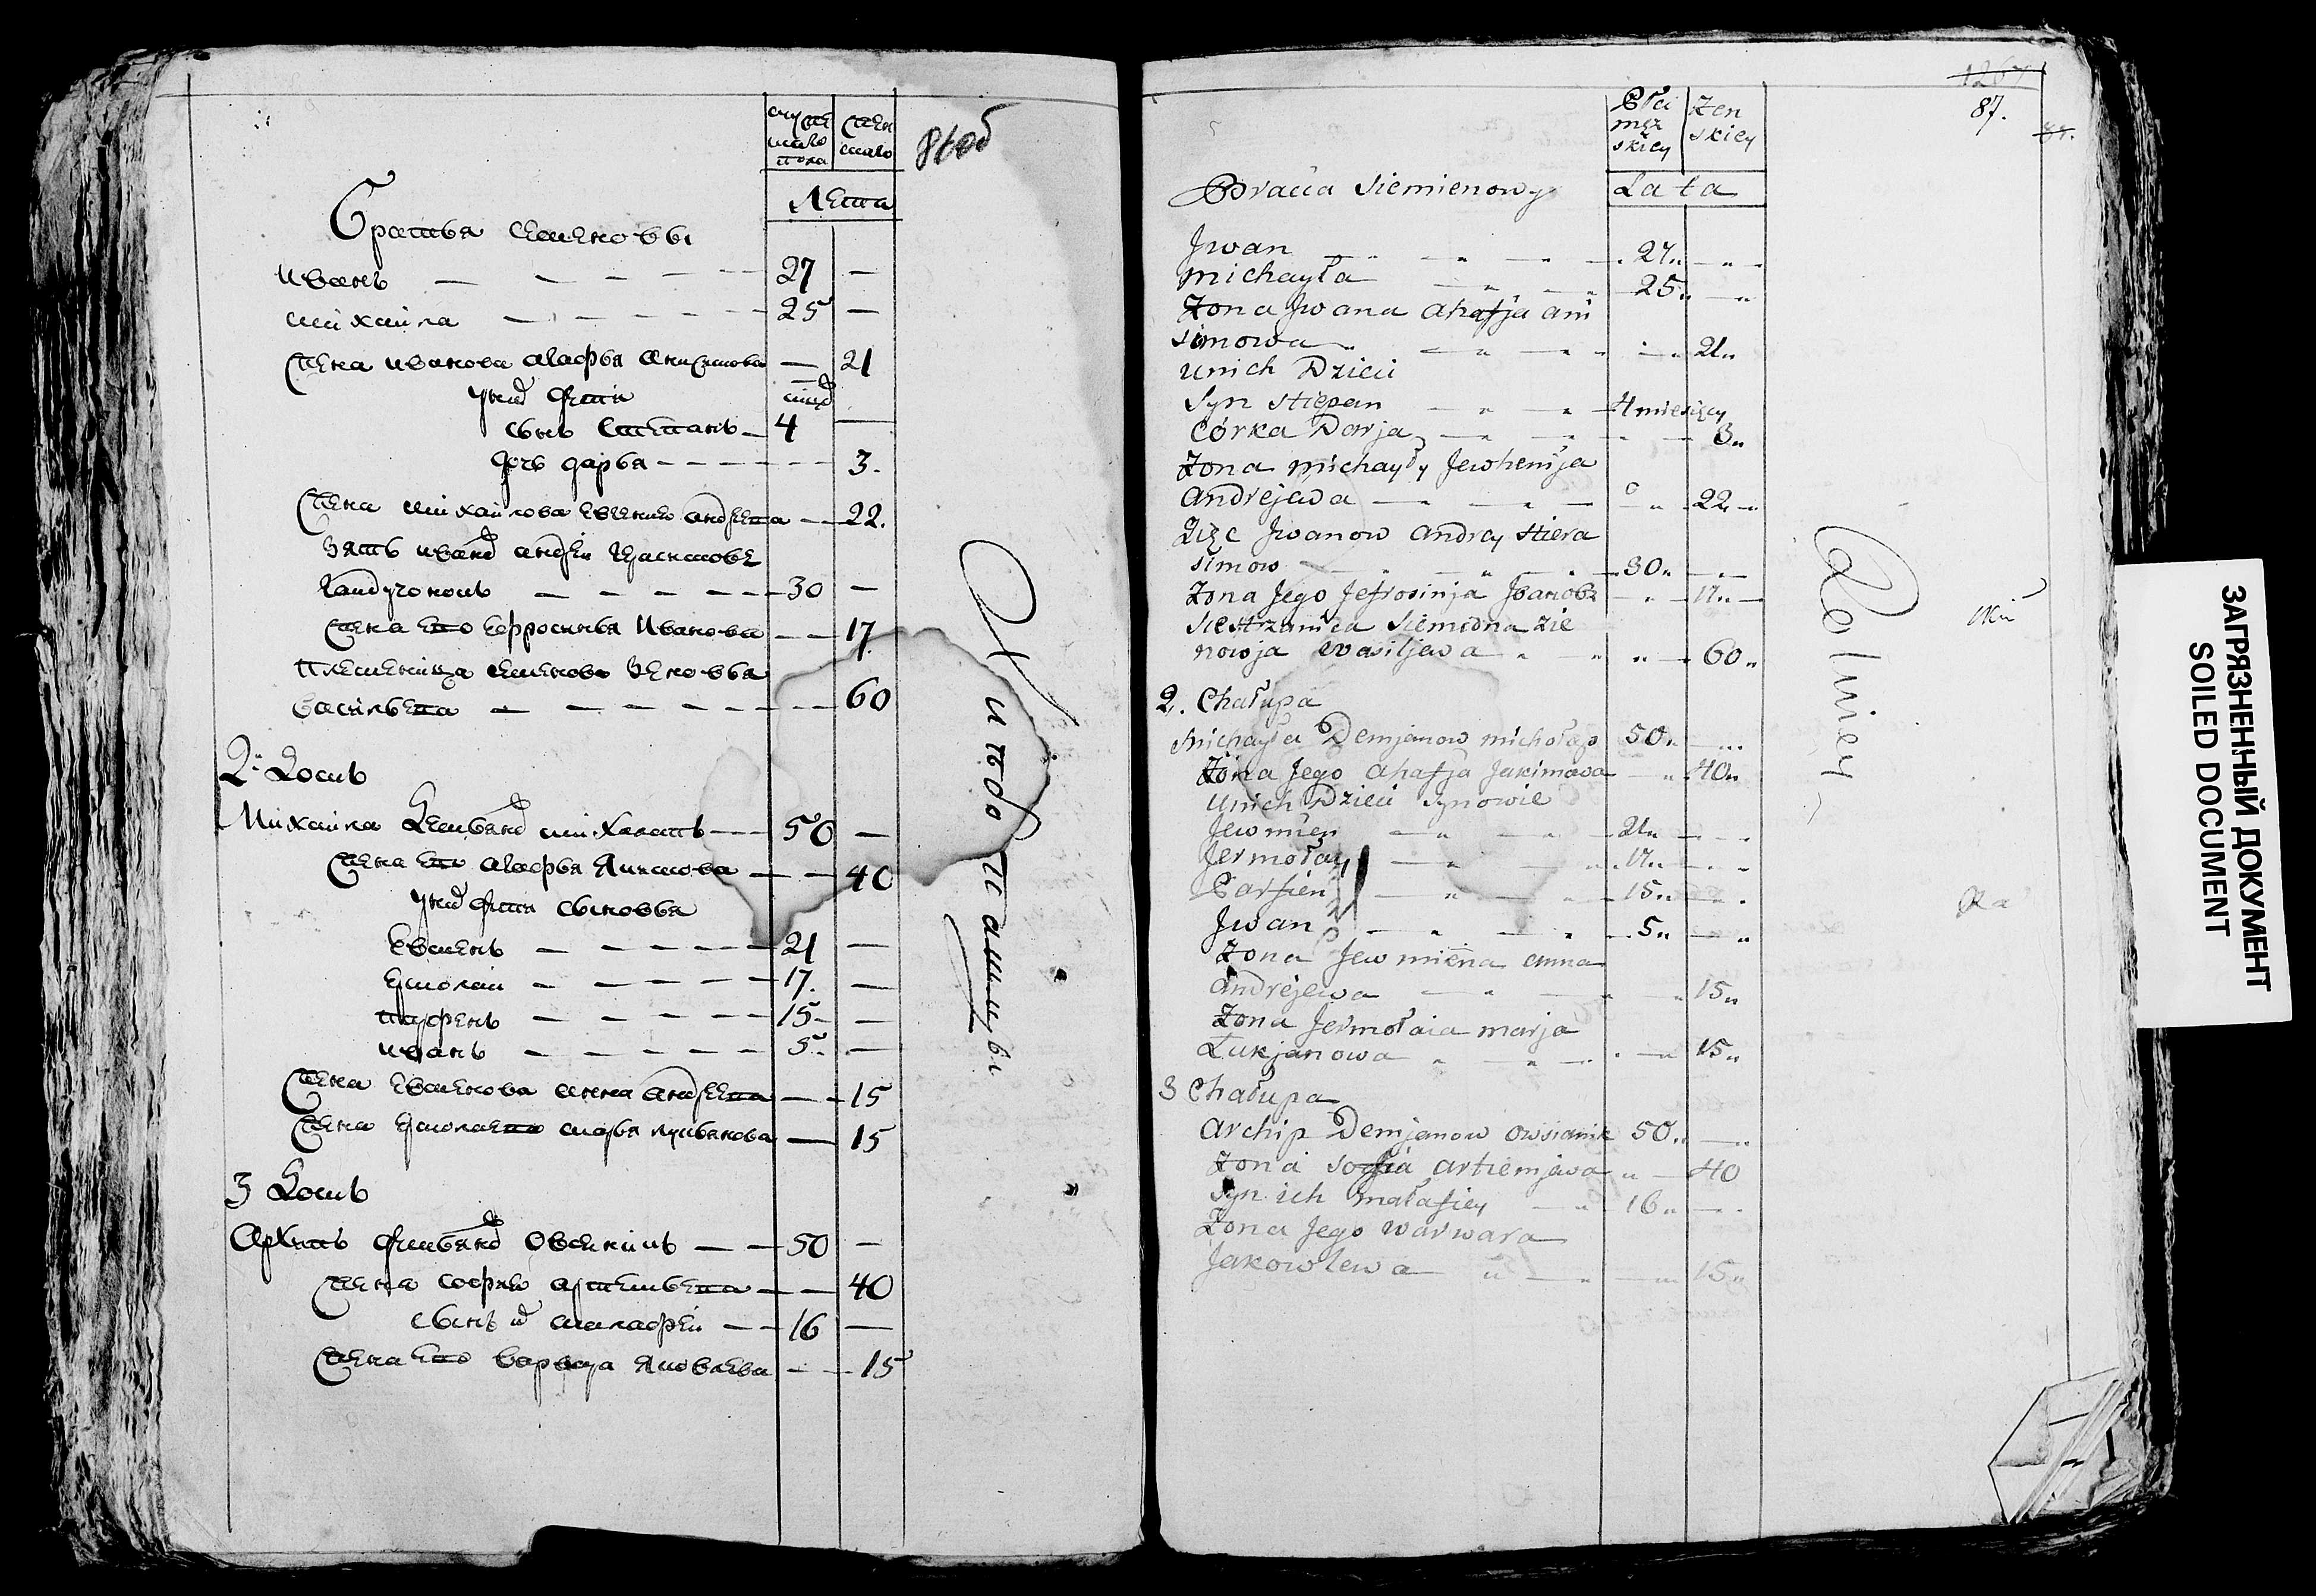 мужескаго пола
женскаго
86об
Лета
Братья семеновы
иванъ — — — — — 27 —
михаила — — — — — 25 —
жена иванова агафья анисимова — 21
у них дети
сынъ степанъ — 4 —
дочь дарья — — — — 3.
жена михаилова евгения андреева — 22.
зять иванов андрей
— — — — 30 —
жена его ефросинья иванова — — 17.
племеница семенова
васильева — — — — — 60
2. домъ
Михаила Демьянов — 50 —
жена его агафья якимова — — 40
у них дети сыновья
евменъ — — — — 21 —
ермолай — — — — 17. —
парфенъ — — — — 15 —
иванъ — — — — 5. —
жена евменова анна андреева — — 15
жена ермолаева марья лукьянова — 15
3 домъ
Архипъ демьянов — — 50 —
жена софия артемьева — — 40
сынъ их малафей — — 16 —
жена его варвара яковлева — — 15
87.
Płci męzskiey
Zenskiey
Bracia Siemienowy
Lata
Jwan 27 „
michayła 25 „
Zona Jwana ahafja ani
simowa 21 „
unich Dzieci
Syn Stiepan 4 miesięcy
córka Darja 3 „
Zona michayły Jewhenija
andrejewa 22 „
Zięc Jwanow andrey Hiera
simow 30 „
Zona Jego Jefrosinja Jwanowa 17 „
Siestrzanica Siemiona Zie
nowja wasiljewa 60 „
2. Chałupa
Michayła Demjanow 50 „
Zona Jego ahafja Jakimowa 40 „
Unich Dzieci Synowie
Jewmien 21 „
Jermołay 17 „
Parfien 15 „
Jwan 5 „
Zona Jewmiena anna
andrejewa 15 „
Zona Jermołaia marja
Łukjanowa 15 „
3 Chałupa
Archip Demjanow owsianik 50 „
Zona Sofia artiemjewa „ 40
Syn ich małafiey 16 „
Zona Jego warwara
Jakowlewa 15 „
ЗАГРЯЗНЕННЫЙ ДОКУМЕНТ
SOILED DOCUMENT